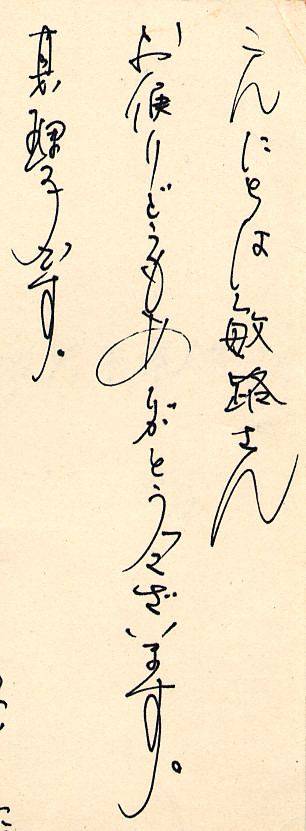 こんにちは敏路さん
お便りどうもありがとうございます。
真理子です。